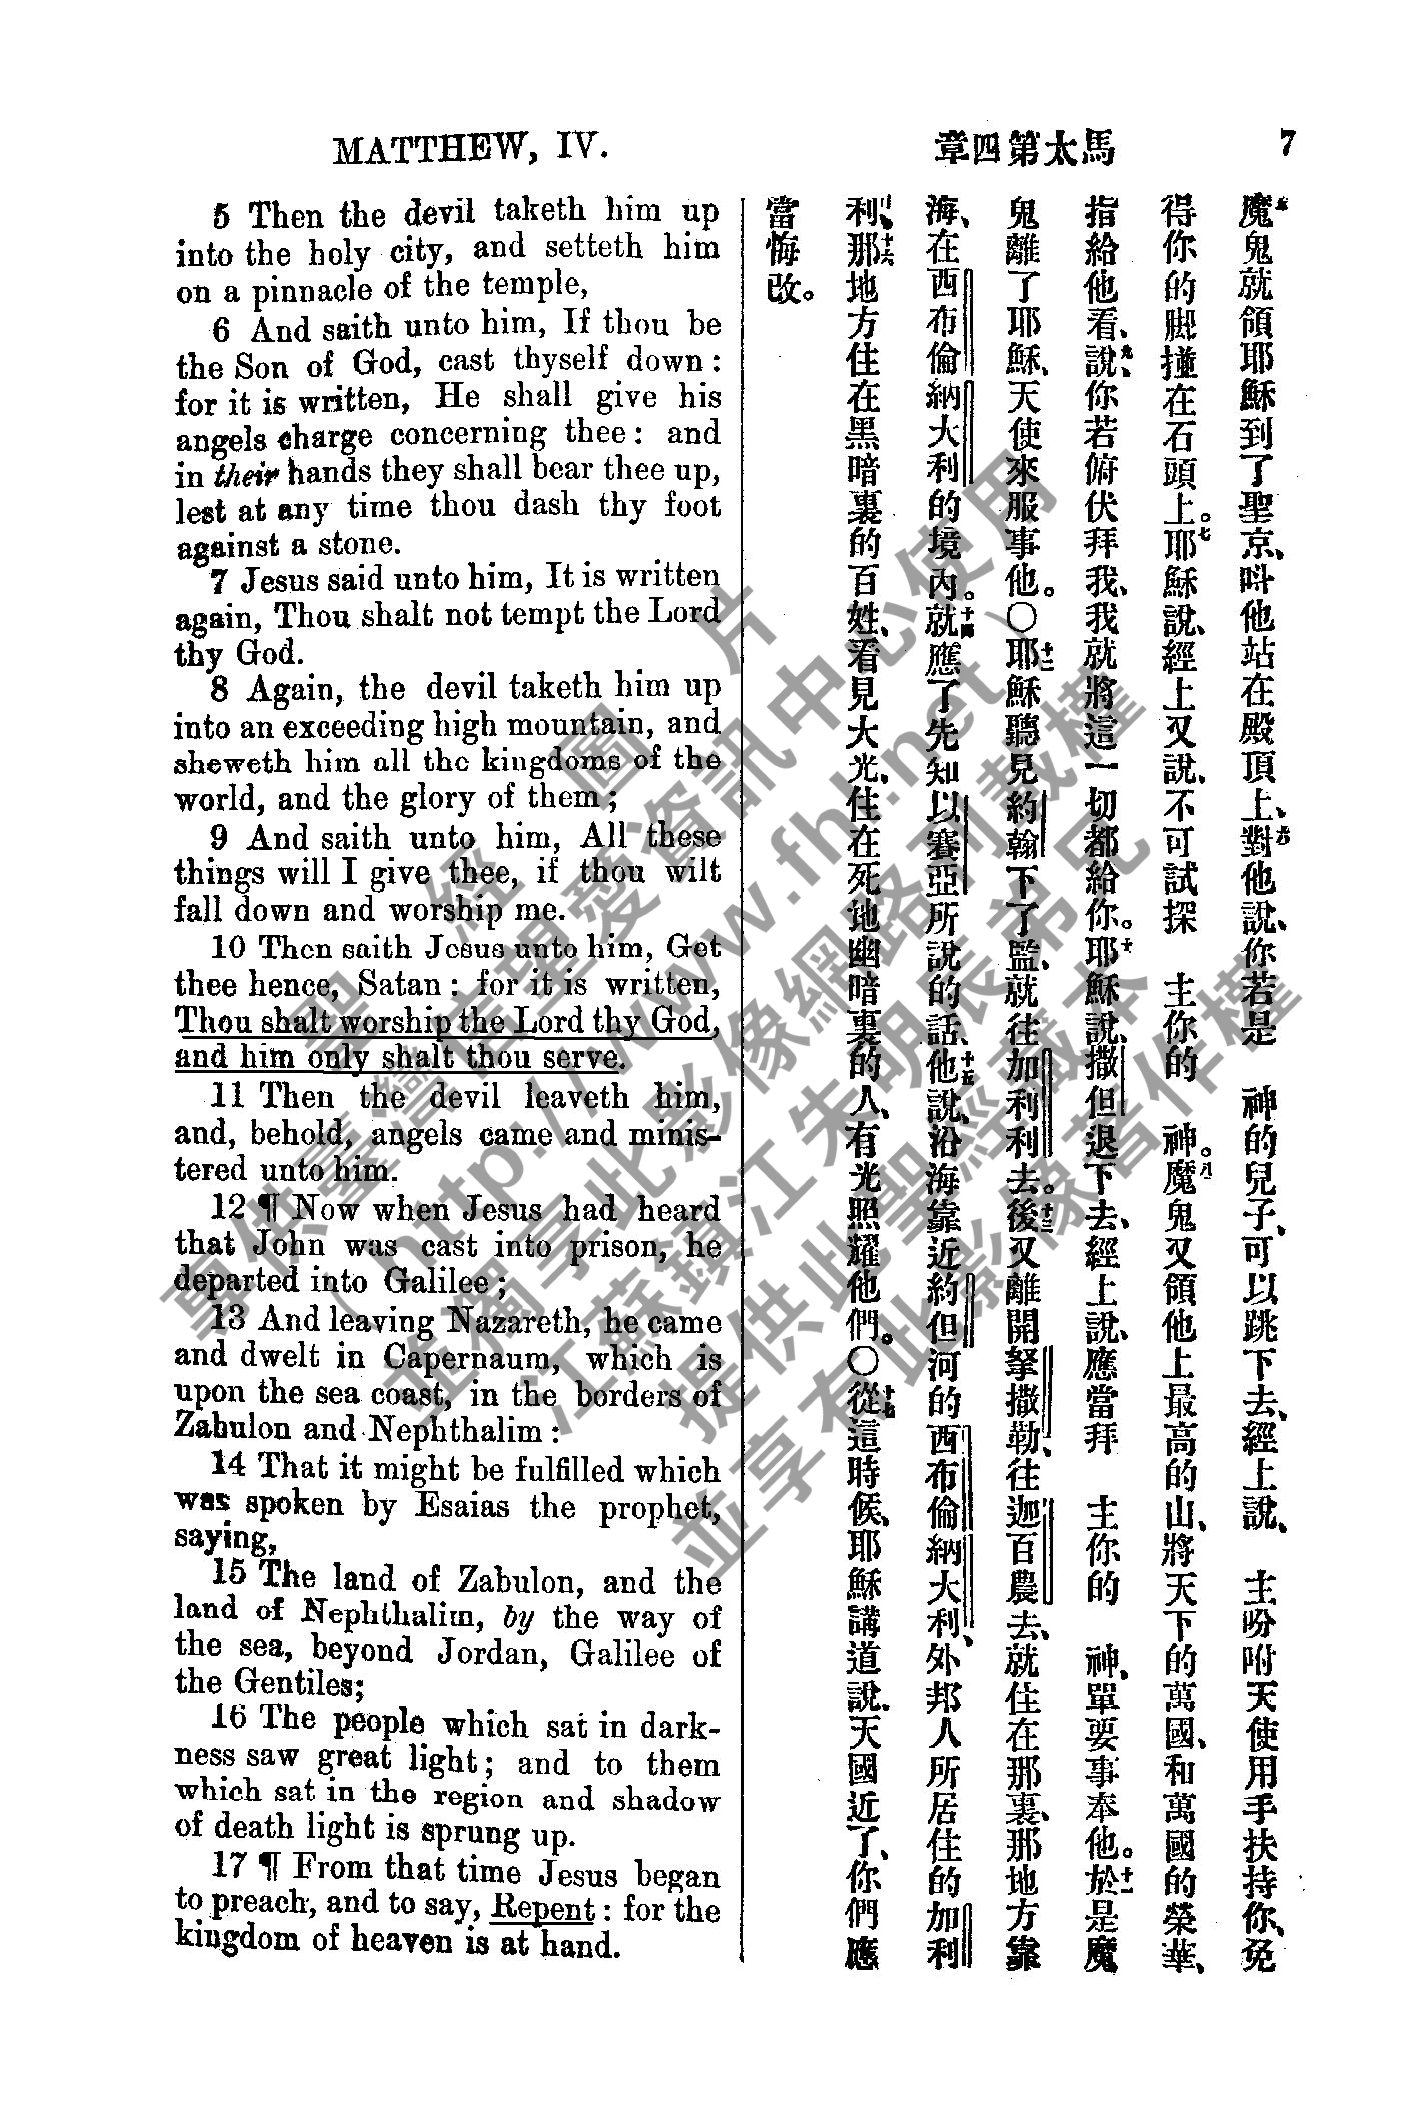 MATTHEW, IV.
章四第太馬
7
5 Then the devil taketh him up
into the holy city, and setteth him
on a pinnacle of the temple,
6 And saith unto him, If thou be
the Son of God, cast thyself down :
for it is written, He shall give his
angels charge concerning thee : and
in their hands they shall bear thee up,
lest at any time thou dash thy foot
against a stone.
7 Jesus said unto him, It is written
again, Thou shalt not tempt the Lord
thy God.
8 Again, the devil taketh him up
into an exceeding high mountain, and
sheweth him all the kingdoms of the
world, and the glory of them ;
9 And saith unto him, All these
things will I give thee, if thou wilt
fall down and worship me.
10 Then saith Jesus unto him, Get
thee hence, Satan : for it is written,
Thou shalt worship the Lord thy God,
and him only shalt thou serve.
11 Then the devil leaveth him,
and, behold, angels came and minis-
tered unto him.
12 ¶ Now when Jesus had heard
that John was cast into prison, he
departed into Galilee ;
13 And leaving Nazareth, he came
and dwelt in Capernaum, which is
upon the sea coast, in the borders of
Zabulon and Nephthalim :
14 That it might be fulfilled which
was spoken by Esaias the prophet,
saying,
15 The land of Zabulon, and the
land of Nephthalim, by the way of
the sea, beyond Jordan, Galilee of
the Gentiles;
16 The people which sat in dark-
ness saw great light ; and to them
which sat in the region and shadow
of death light is sprung up.
17 ¶ From that time Jesus began
to preach, and to say, Repent : for the
kingdom of heaven is at hand.
魔五鬼就領耶穌到了聖京、呌他站在殿頂上、對六他說、你若是 神的兒子、可以跳下去、經上說、 主吩咐天使用手扶持你、免
得你的脚撞在石頭上。耶七穌說、經上又說、不可試探 主你的 神。魔八鬼又領他上最高的山、將天下的萬國、和萬國的榮華、
指給他看、說九、你若俯伏拜我、我就將這一切都給你。耶十穌說、撒但退下去、經上說、應當拜 主你的 神、單要事奉他。於十一是魔
鬼離了耶穌、天使來服事他。〇耶十二穌聽見約翰下了監、就往加利利去。後十三又離開拏撒勒、往迦百農去、就住在那裏、那地方靠
海、在西布倫納大利的境內。就十四應了先知以賽亞所說的話、他十五說、沿海靠近約但河的西布倫納大利、外邦人所居住的加利
利、那十六地方住在黑暗裏的百姓、看見大光、住在死地幽暗裏的人、有光照耀他們。〇從十七這時候、耶穌講道說、天國近了、你們應
當悔改。
聖經圖片
享供臺灣信望愛資訊中心使用
( http://www.fhl.net )
並獨享此影像網路刊載權
江蘇鎮江朱明辰弟兄
提供此聖經藏本
並享有此影像著作權